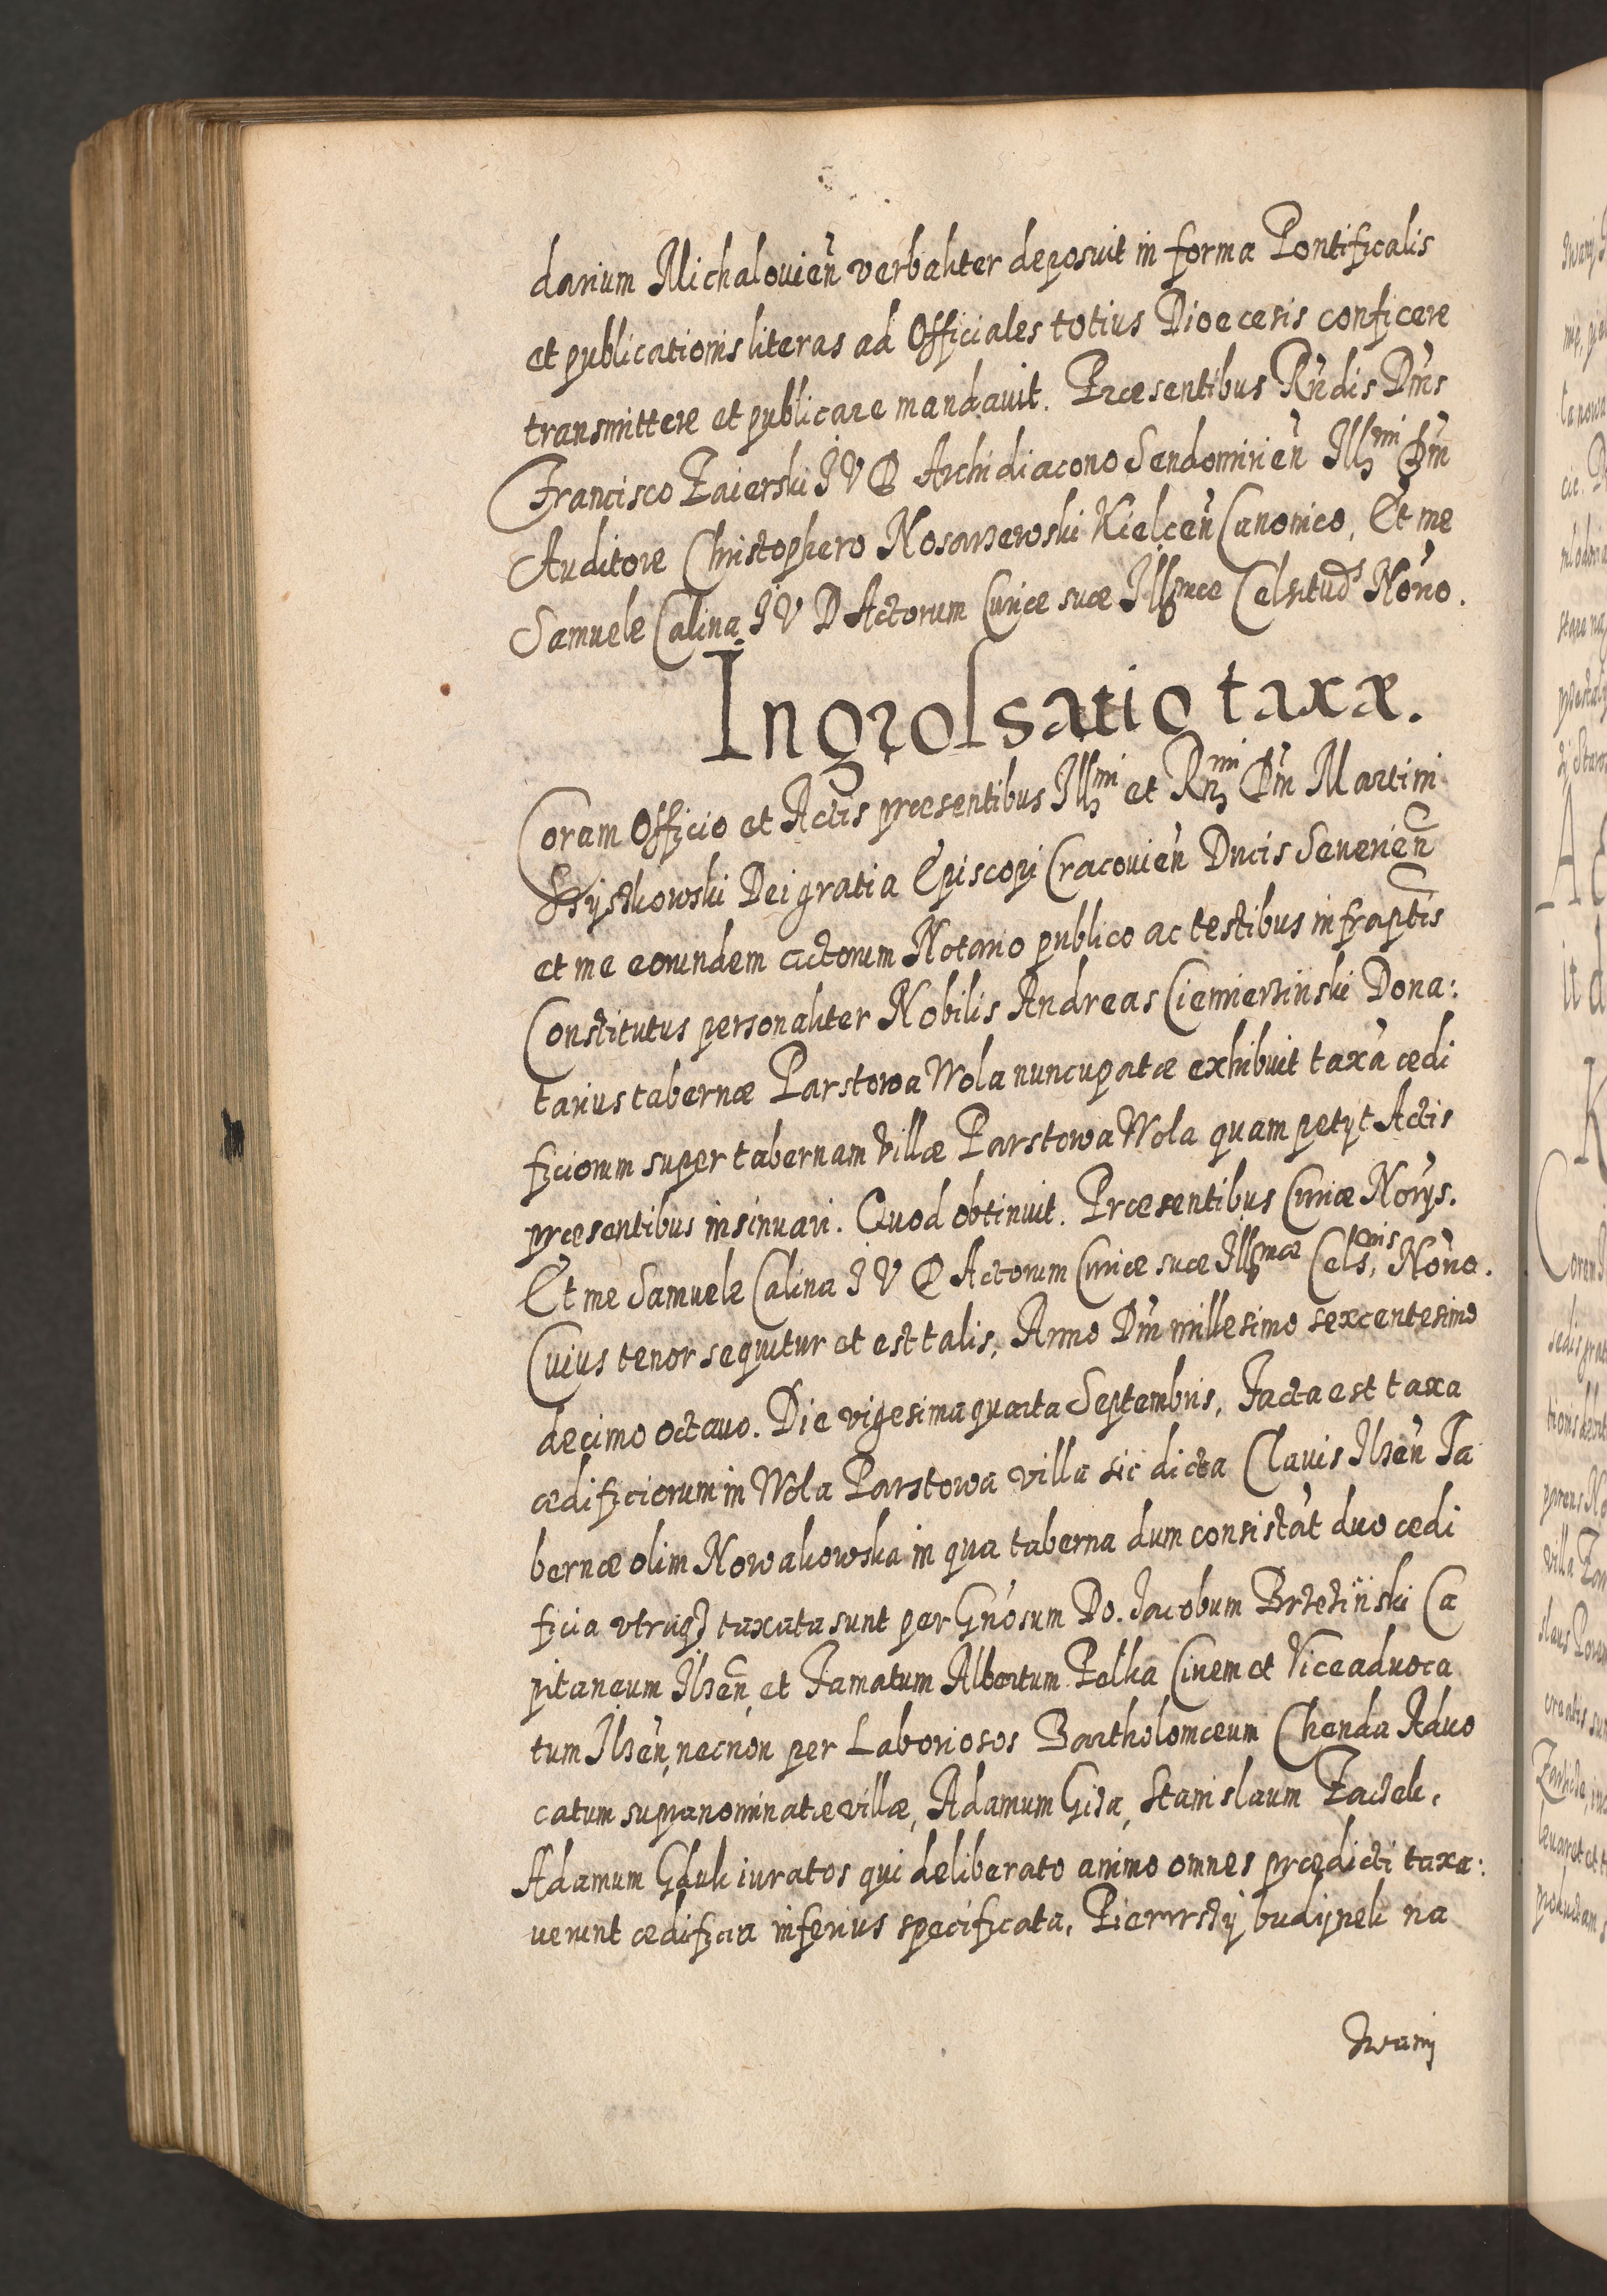 darium Michalovień verbaliter deposuit in forma Pontificalis
et publicationis literas ad Officiales totius Dioecesis conficere
transmittere et publicare mandavit. Præsentibus Rńdis Dńis
Francisco Zaierski I V D Archidiacono Sendomirień Illmi Dńi
Auditore Christophero Nosarzewski Kielceń Canonico, Et me
Samuele Calina I V D Actorum Curiæ suæ Illmæ Celsitudis Nório.
Ingrossatio taxæ.
Coram Officio et Actis præsentibus Illmi et Rmi Dńi Martini
Szyszkowski Dei gratia Episcopi Cracovień Ducis Severień
et me eorundem actorum Notario publico ac testibus infraptis
Constitutus personaliter Nobilis Andreas Ciemierzinski Dona:
tarius tabernæ Parszowa Wola nuncupatæ exhibuit taxá ædi
ficiorum super tabernam Villæ Parszowa Wola quam petyt Actis
præsentibus insinuari. Quod obtinuit. Præsentibus Curiæ Nórijs.
Et me Samuele Calina I V D Actorum Curiæ suæ Illmæ Cels: Nório.
Cuius tenor sequitur et est talis, Anno Dńi millesimo sexcentesimo
decimo octavo. Die vigesima quarta Septembris, Facta est taxa
ædificiorum in Wola Parszowa villa sic dicta Clavis Ilzeń Ta
bernæ olim Nowakowska in qua taberna dum consistát duo ædi
ficia utraq3 taxata sunt per Gńosum Do. Iacobum Brzezinski Ca
pitaneum Ilzeń, et Famatum Albertum Pelka Civem et Viceadvoca
tum Ilzeń, necnon per Laboriosos Bartholomæum Chenda Advo
catum supranominatæ villæ, Adamum Giza, Stanislaum
Adamum Gduk iuratos qui deliberato animo omnes prædicti taxa:
verunt ædificia inferius specificata, Pierwszy budijnek na